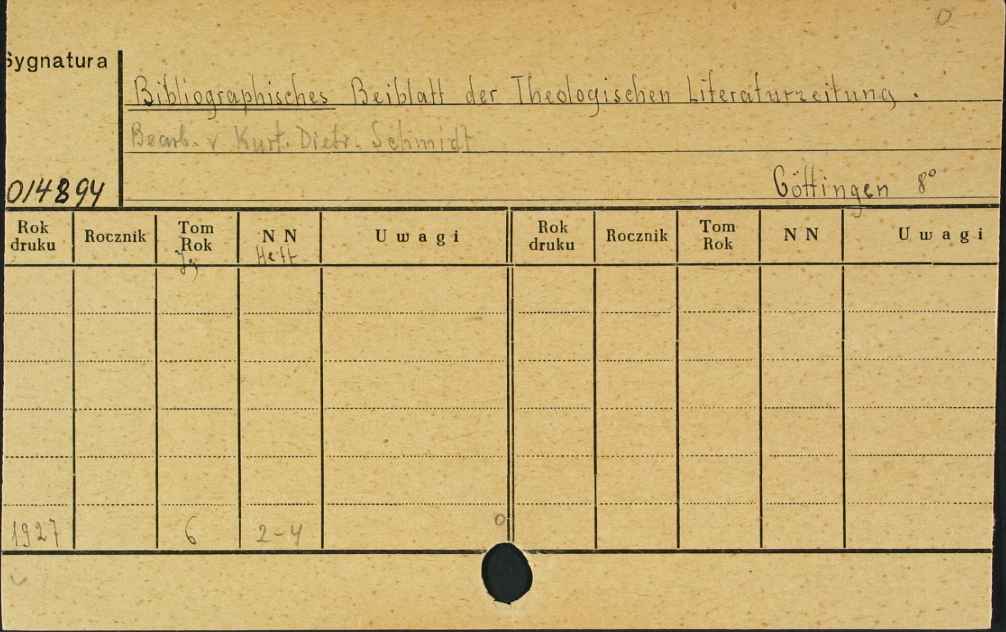 Sygnatura
Bibliographisches Beiblatt der Theologischen Literaturzeitung.
Bearb. v Kurt. Dietr. Schmidt
014894
Göttingen 8°
Rok druku Rocznik Tom Rok NN Uwagi Rok druku Rocznik Tom Rok NN Uwagi
Jg Heft
1927 6 2-4